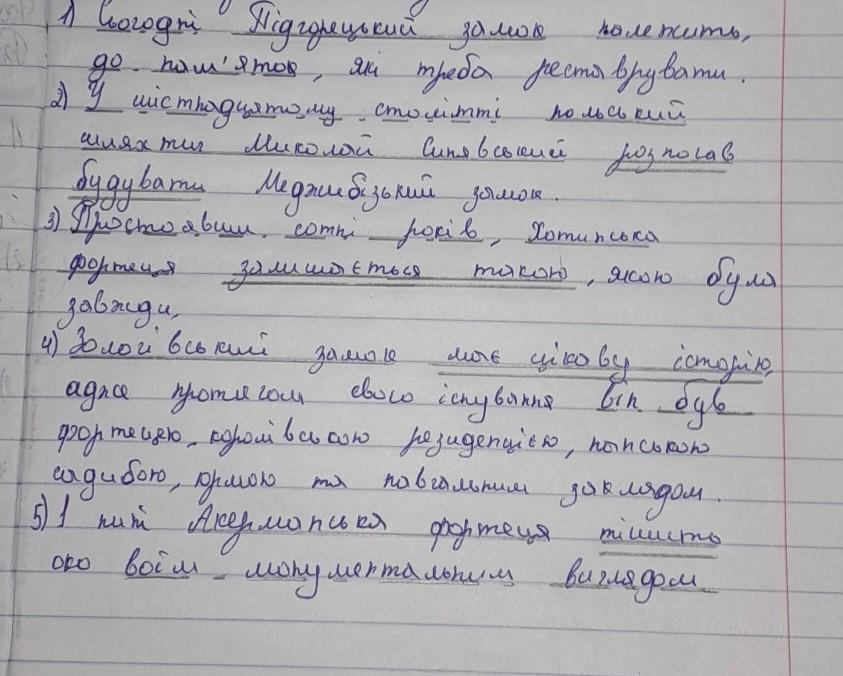 1) Сьогодні Підгорецький замок належить,
до пам'яток, які треба реставрувати.
2) У шістнадцятому столітті польський
шляхтич Миколай Синявський розпочав
будувати Меджибізький замок.
3) Простоявши сотні років, Хотинська
фортеця залишається такою, якою була
завжди,
4) Золочівський замок має цікаву історію,
адже протягом свого існування він був
фортецею, королівською резиденцією, панською
садибою, юрмою та навчальним закладом.
5) І нині Акерманська фортеця тішить
око своїм монументальним виглядом